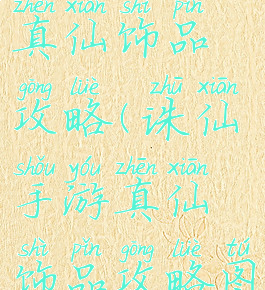 zhēn xiān shì pǐn
真仙饰品
gōng lüè zhū xiān
攻略(诛仙
shǒu yóu zhēn xiān
手游真仙
shì pǐn gōng lüè tú
饰品攻略图